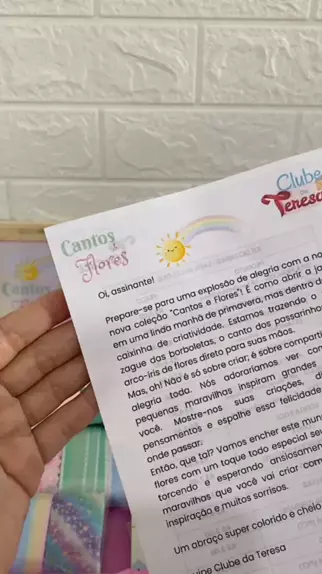 Clube
da
Teresa
Cantos
&
Flores
Oi, assinante!
Prepare-se para uma explosão de alegria com a no
nova coleção "Cantos e Flores"! É como abrir a ja
em uma linda manhã de primavera, mas dentro d
caixinha de criatividade. Estamos trazendo o
zague das borboletas, o canto dos passarinho
arco-íris de flores direto para suas mãos.
Mas, oh! Não é só sobre criar; é sobre comparti
alegria toda. Nós adoraríamos ver com
pequenas maravilhas inspiram grandes
você. Mostre-nos suas criações, di
pensamentos e espalhe essa felicidade
onde passar.
Então, que tal? Vamos encher este mun
flores com um toque todo especial seu
torcendo e esperando ansiosamen
maravilhas que você vai criar com
inspiração e muitos sorrisos.
Um abraço super colorido e cheio
uipe Clube da Teresa